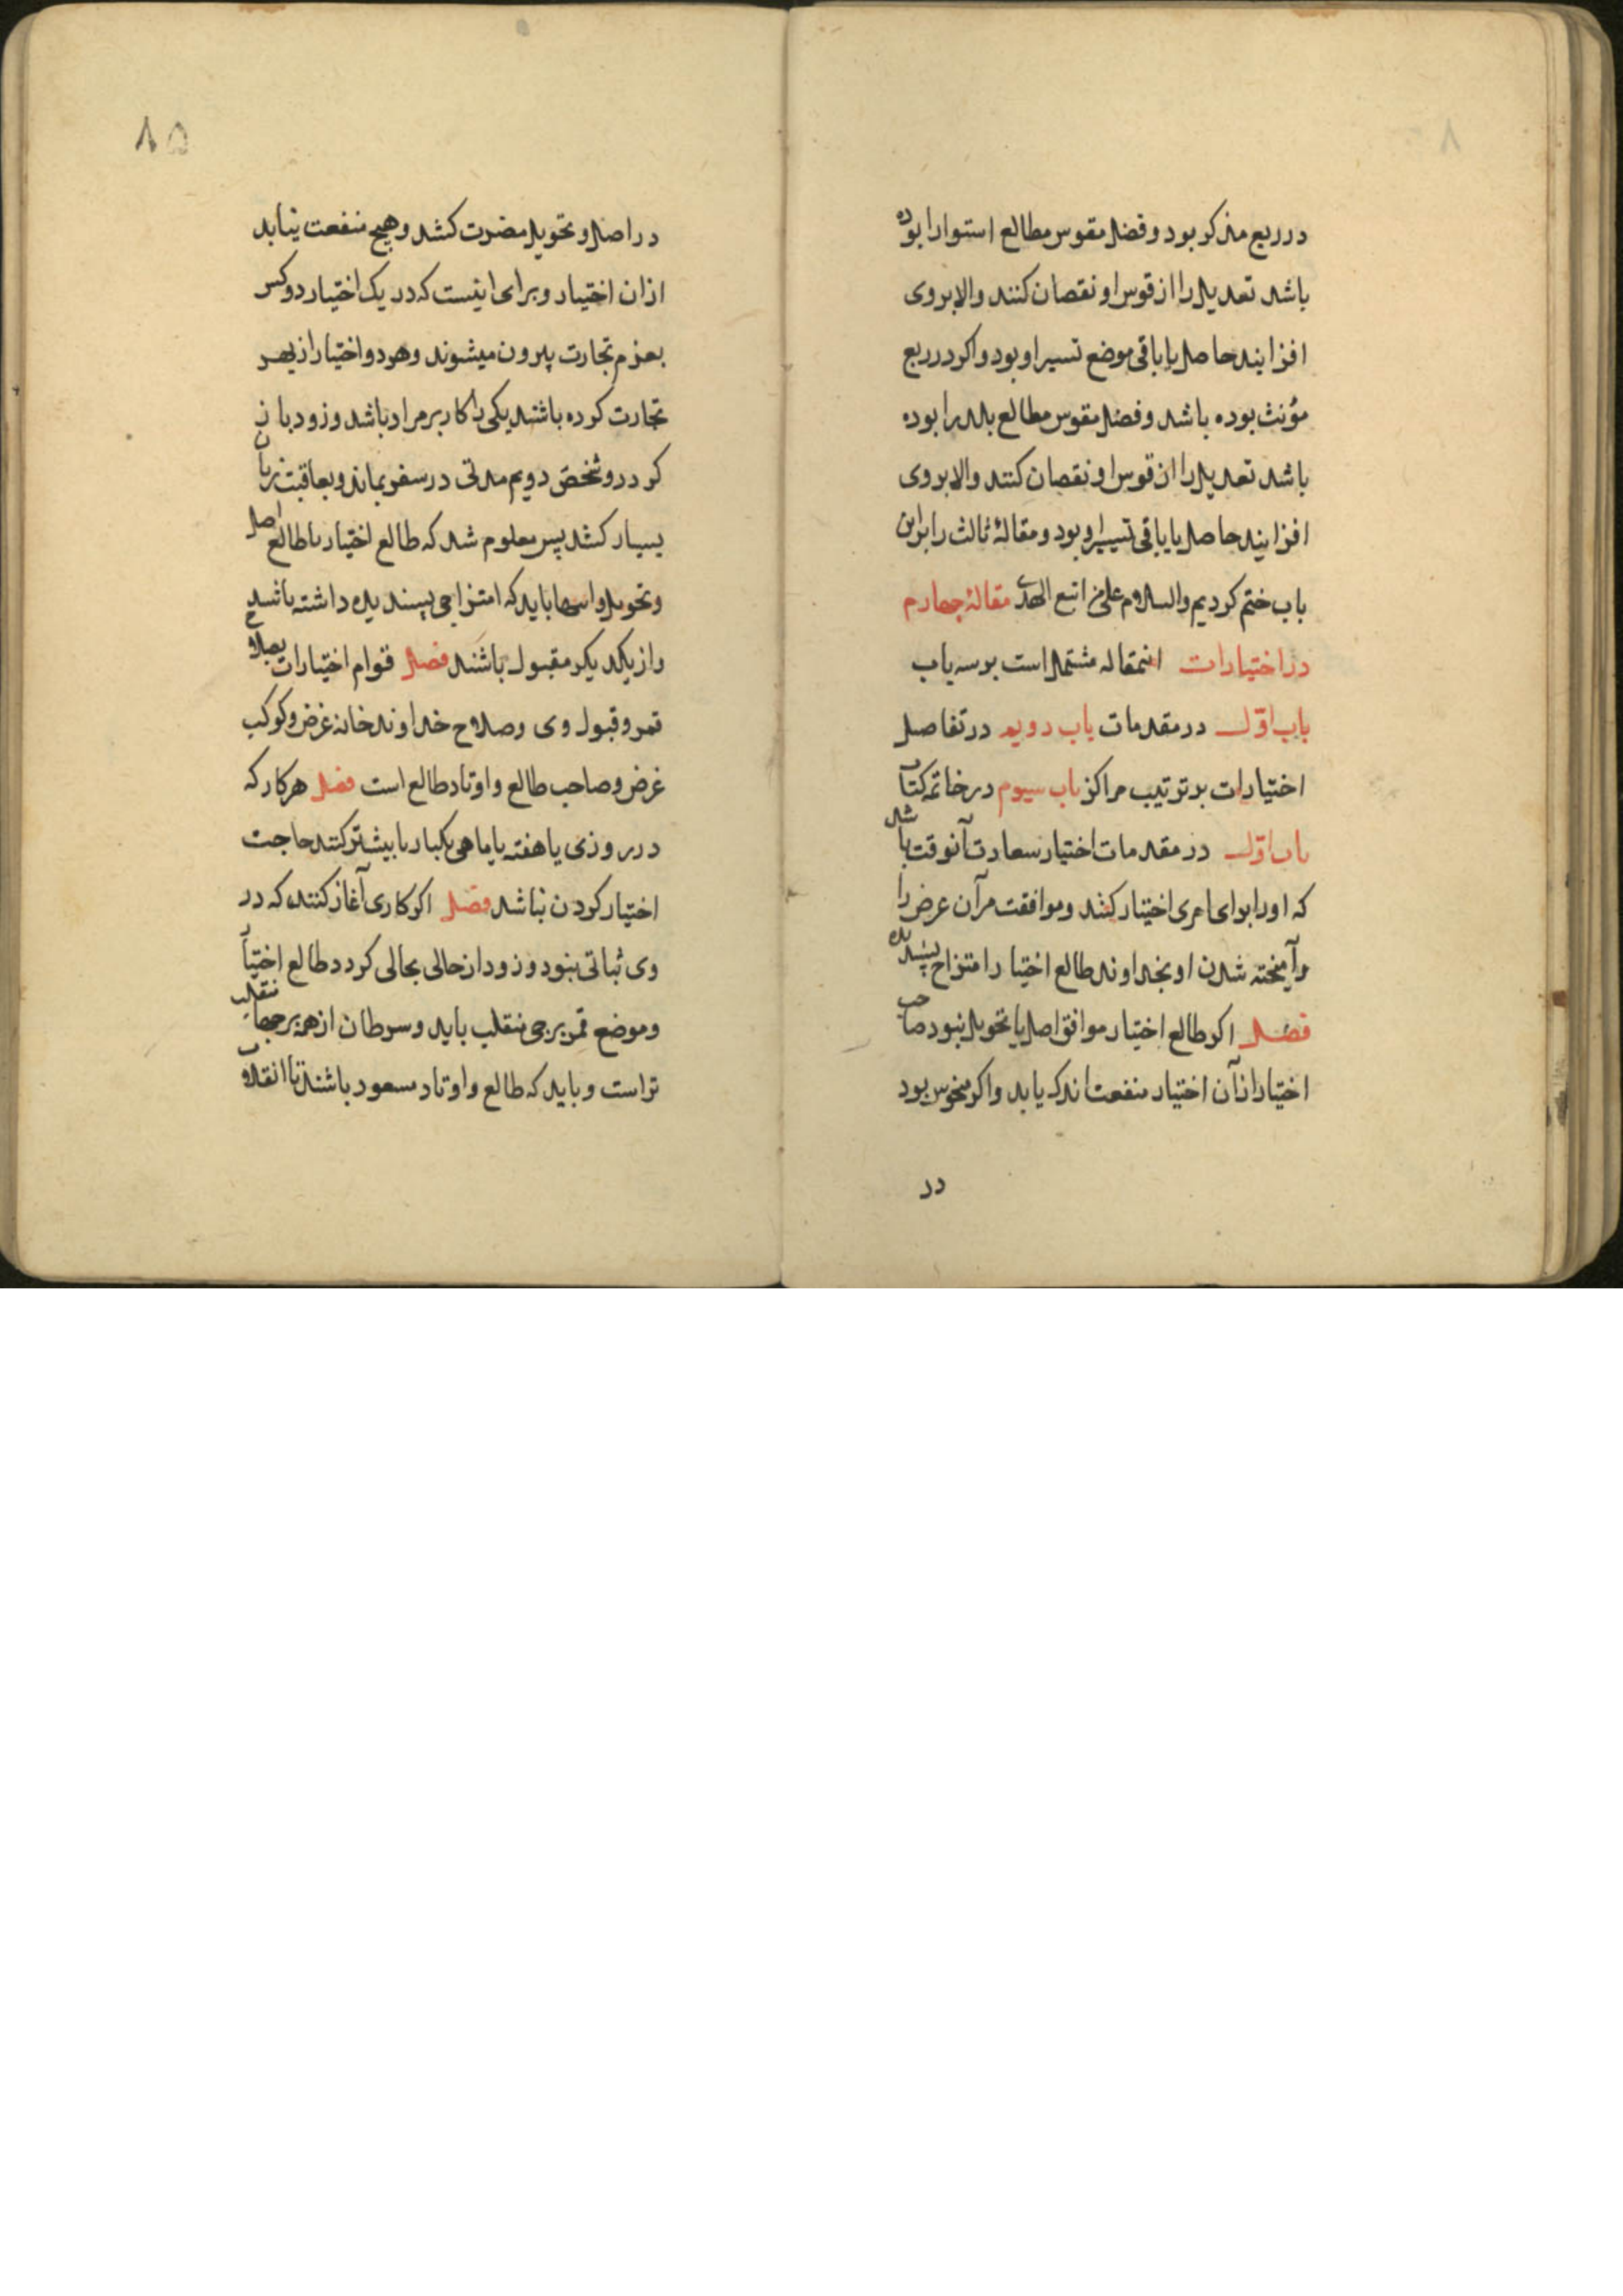 در ربع مذکر بود و فضل مقوس مطالع استوا را بوده
باشد تعدیل را از قوس او نقصان کنند والا بر وی
افزایند حاصل یا باقی موضع تسییر او بود و اکر در ربع
مؤنث بوده باشد و فضل مقوس مطالع بلد را بوده
باشد تعدیل را از قوس او نقصان کنند والا بر وی
افزایند حاصل یا باقی تسییر او بود و مقالهٔ ثالث را بر این
باب ختم کردیم والسلام علی من اتبع الهدی مقالهٔ چهارم
در اختیارات اینمقاله مشتمل است بر سه باب
باب اوّل در مقدمات باب دویم در تفاصیل
اختیارات بر ترتیب مراکز باب سیوم در خاتمه کتاب
باب اوّل در مقدمات اختیار سعادت آنوقت باشد
که او را برای امری اختیار کنند و موافقت مر آن غرض را
و آمیخته شدن او بخداوند طالع اختیار امتزاج پسندیده
فصل اکر طالع اختیار موافق اصل یا تحویل نبود صاحب
اختیار از آن اختیار منفعت اندک یابد و اکر منحوس بود
در
۸۵
در اصل و تحویل مضرت کشد و هیچ منفعت نیابد
از آن اختیار و برای اینست که در یک اختیار دو کس
بعزم تجارت بیرون میشوند و هر دو اختیار از بهر
تجارت کرده باشند یکی را کار بر مراد باشد و زود باز
کردد و شخص دویم مدتی در سفر بماند و بعاقبت زیان
بسیار کشد پس معلوم شد که طالع اختیار با طالع اصل
و تحویل و انتها باید که امتزاجی پسندیده داشته باشد
و از یکدیکر مقبول باشند فصل قوام اختیارات بصلاح
قمر و قبول وی و صلاح خداوند خانه غرض و کوکب
غرض و صاحب طالع و اوتاد طالع است فصل هر کار که
در روزی یا هفته یا ماهی یکبار یا بیشتر کنند حاجت
اختیار کردن نباشد فصل اکر کاری آغاز کنند که در
وی ثباتی نبود و زود از حالی بحالی کردد طالع اختیار
و موضع قمر برجی منقلب باید و سرطان از همه برجها منقلب
تر است و باید که طالع و اوتاد مسعود باشند تا انقلاب